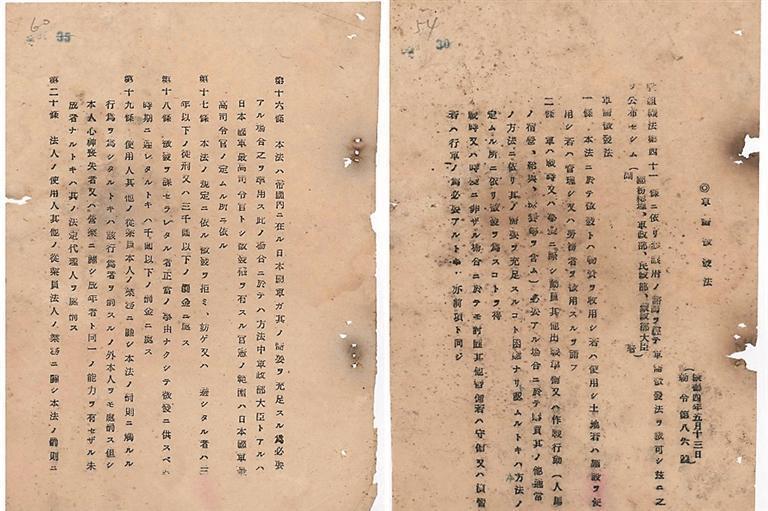 54
30
◎軍需徴發法
康德四年五月十三日
勅令第八六號
組織法第四十一條ニ依リ參議府ノ諮詢ヲ經テ軍需徴發法ヲ裁可シ茲ニ之
ヲ公布セシム
軍需徴發法
一條 本法ニ於テ徴發トハ物資ヲ收用シ若ハ使用シ土地若ハ施設ヲ使
用シ若ハ管理シ又ハ勞務者ヲ使用スルヲ謂フ
二條 軍ハ戰時又ハ事變ニ際シ動員其他出戰準備又ハ作戰行動(人馬
ノ宿營、給與、ヲ含ム)必要アル場合ニ於テ購買其ノ他通常
ノ方法ニ依リ其ノ需要ヲ充足スルコト困難ナリト認ムルトキハ方法ノ
定ムル所ニ依リ徴發ヲ爲スコトヲ得
戰時又ハ事變ニ非ザル場合ニ於テモ討匪其他警備若ハ守備又ハ演習
若ハ行軍ノ爲必要アルトキ亦前項ト同ジ
60
35
第十六條 本法ハ帝國內ニ在ル日本國軍ガ其ノ需要ヲ充足スル爲必要
アル場合之ヲ準用ス此ノ場合ニ於テハ方法中軍政部大臣トアルハ
日本國軍最高司令官トシ徴發權ヲ有スル官憲ノ範圍ハ日本國軍最
高司令官ノ定ムル所ニ依ル
第十七條 本法ノ規定ニ依ル徴發ヲ拒ミ、妨ゲ又ハ避シタル者ハ三
年以下ノ徒刑又ハ三千圓以下ノ罰金ニ處ス
第十八條 徴發ヲ課セラレタル者正當ノ事由ナクシテ徴發ニ供スベキ
時期ニ遲レタルトキハ千圓以下ノ罰金ニ處ス
第十九條 使用人其他ノ從業員本人ノ業務ニ關シ本法ノ罰則ニ觸ルル
行爲ヲ爲シタルトキハ該行爲者ヲ罰スルノ外本人ヲモ處罰ス但シ
本人心神喪失者又ハ營業ニ關シ成年者ト同一ノ能力ヲ有セザル未
成年者ナルトキハ其ノ法定代理人ヲ處罰ス
第二十條 法人ノ使用人其他ノ從業員法人ノ業務ニ關シ本法ノ罰則ニ